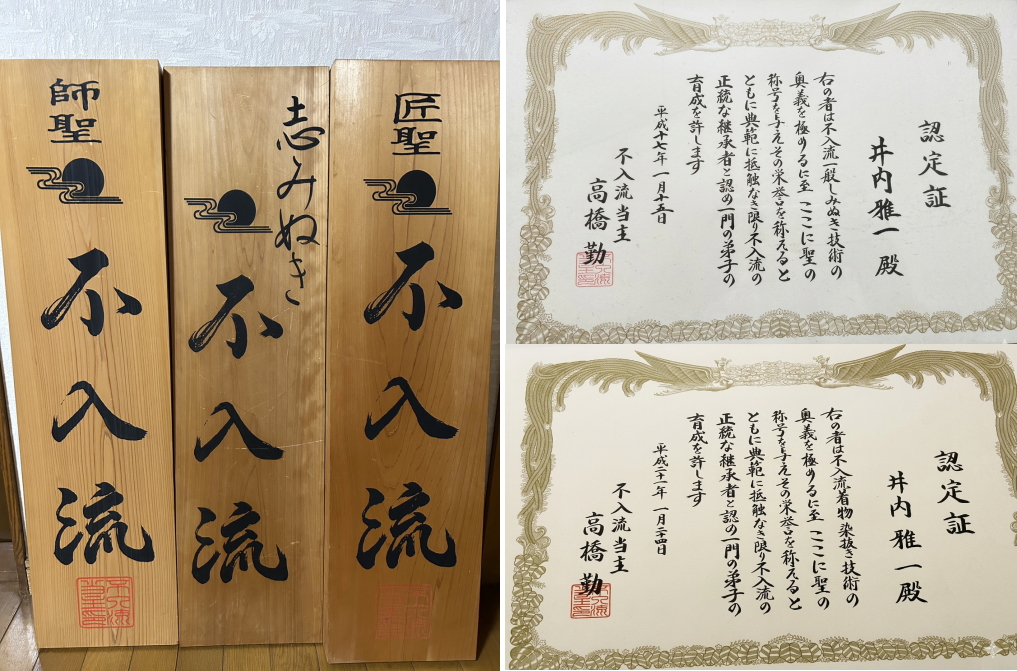 師聖
不入流
志みぬき
不入流
匠聖
不入流
認定証
井内雅一殿
右の者は不入流一般しみぬき技術の
奥義を極めるに至りここに聖の
称号を与えその栄誉を称えると
ともに典範に抵触なき限り不入流の
正統な継承者と認め一門の弟子の
育成を許します
平成十七年一月十五日
不入流当主
高橋勤
認定証
井内雅一殿
右の者は不入流着物染抜き技術の
奥義を極めるに至りここに聖の
称号を与えその栄誉を称えると
ともに典範に抵触なき限り不入流の
正統な継承者と認め一門の弟子の
育成を許します
平成二十一年一月二十四日
不入流当主
高橋勤